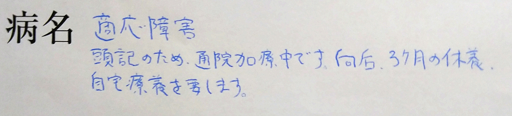 病名 適応障害
頭記のため、通院加療中です。向后、3ケ月の休養、
自宅療養を要します。